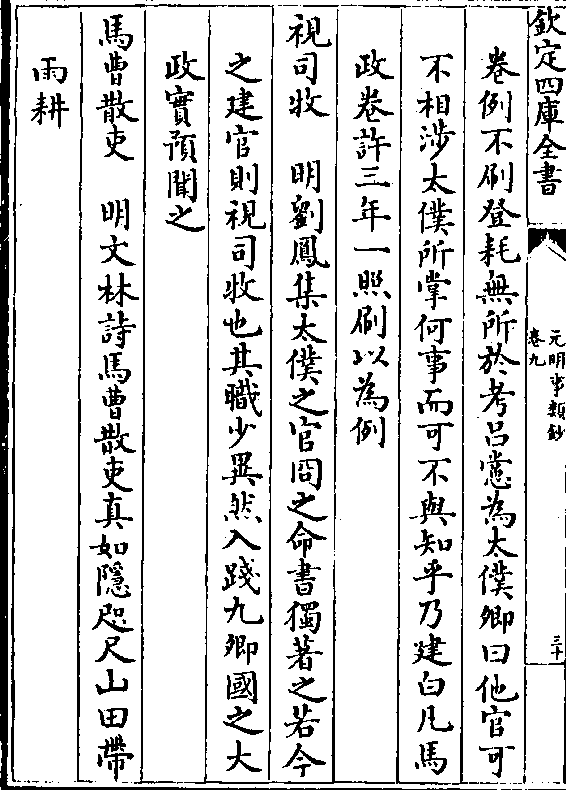 欽定四庫全書
元明事類鈔
卷九
三十
卷例不刷登耗無所於考呂憲為太僕卿曰他官可
不相涉太僕所掌何事而可不與知乎乃建白凡馬
政卷許三年一照刷以為例
視司牧　明劉鳳集太僕之官冏之命書獨著之若今
之建官則視司牧也其職少異然入踐九卿國之大
政實預聞之
馬曹散吏　明文林詩馬曹散吏真如隱咫尺山田帶
雨耕